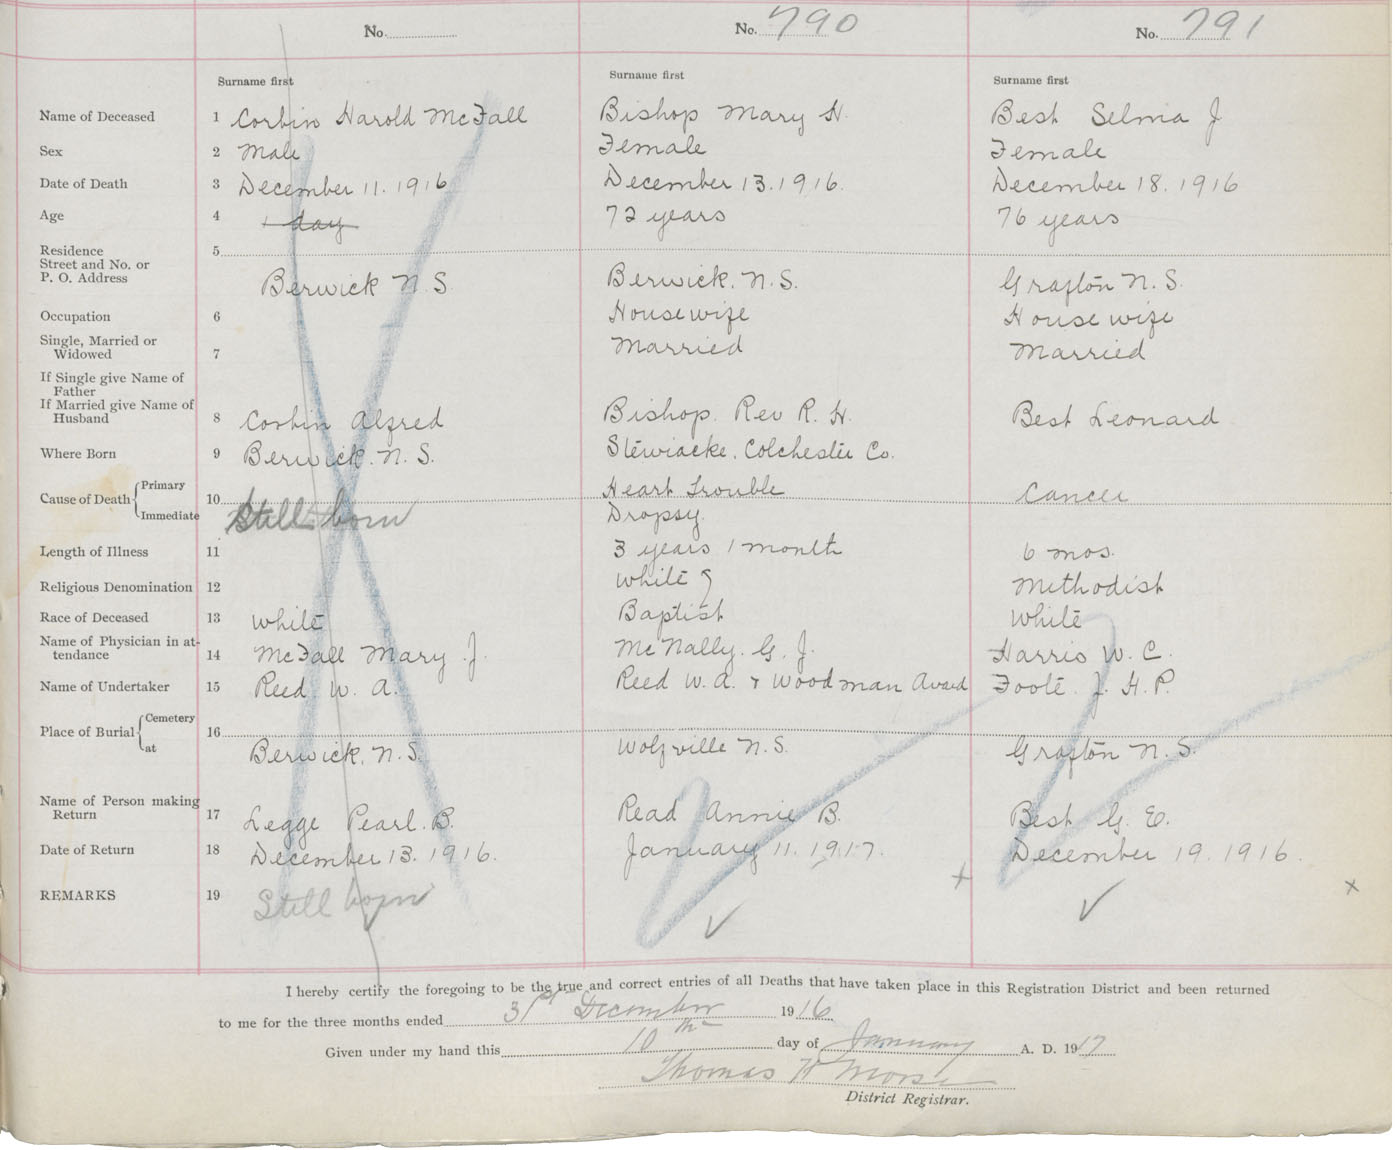 No. No. 790 No. 791
Surname first Surname first Surname first
Name of Deceased 1 Corbin Harold McFall Bishop Mary H. Best Selmia J
Sex 2 Male Female Female
Date of Death 3 December 11. 1916 December 13. 1916. December 18. 1916
Age 4 1 day 72 years 76 years
Residence 5
Street and No. or
P. O. Address Berwick N S. Berwick. N. S. Grafton N. S.
Occupation 6 Housewife Housewife
Single, Married or
Widowed 7 Married Married
If Single give Name of
Father
If Married give Name of
Husband 8 Corbin Alfred Bishop. Rev R. H. Best Leonard
Where Born 9 Berwick. N. S. Stewiacke, Colchester Co.
Cause of Death Primary 10 Heart Trouble Cancer
Immediate Still born Dropsy.
Length of Illness 11 3 years 1 month 6 mos.
Religious Denomination 12 White Methodist
Race of Deceased 13 White Baptist White
Name of Physician in at-
tendance 14 McFall Mary J. McNally. G. J. Harris W. C.
Name of Undertaker 15 Reed W. A. Reed W. A. & Woodman Avard Foote J. H. P.
Place of Burial Cemetery 16
at Berwick. N. S. Wolfville N. S. Grafton N. S.
Name of Person making
Return 17 Legge Pearl. B. Read Annie B. Best G. E.
Date of Return 18 December 13. 1916. January 11. 1917. December 19. 1916.
REMARKS 19 Still born
I hereby certify the foregoing to be the true and correct entries of all Deaths that have taken place in this Registration District and been returned
to me for the three months ended 31st December 1916
Given under my hand this 10th day of January A. D. 1917
Thomas H Morse
District Registrar.